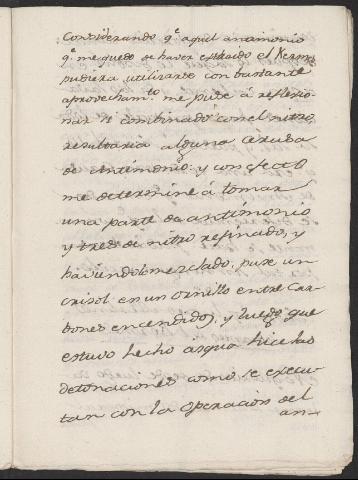 Considerando q.e aquel antimonio
q.e me quedo de haver extraido el Kermes
pudiera utilizarse con bastante
aprovecham.to me puse á reflexio-
nar si combinado con el nitro
resultaria alguna Ceruba
de Antimonio: y con efecto
me determine á tomar
una parte de antimonio
y tres de nitro refinado, y
haviendolo mezclado, puse un
crisol en un ornillo entre Car-
bones encendidos, y luego que
estuvo hecho asqua hice las
detonaciones como se execu-
tan con la operacion del
an-